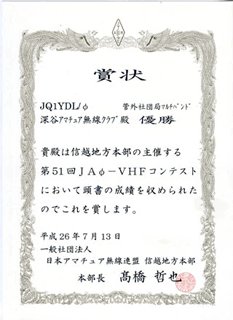 賞状
JQ1YDL/φ 管外社団局マルチバンド
深谷アマチュア無線クラブ殿 優勝
貴殿は信越地方本部の主催する
第51回JAφ-VHFコンテスト
において頭書の成績を収められた
のでこれを賞します。
平成26年7月13日
一般社団法人
日本アマチュア無線連盟 信越地方本部
本部長 髙橋 哲也